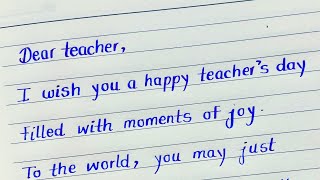 Dear teacher,
I wish you a happy teacher's day
filled with moments of joy.
To the world, you may just